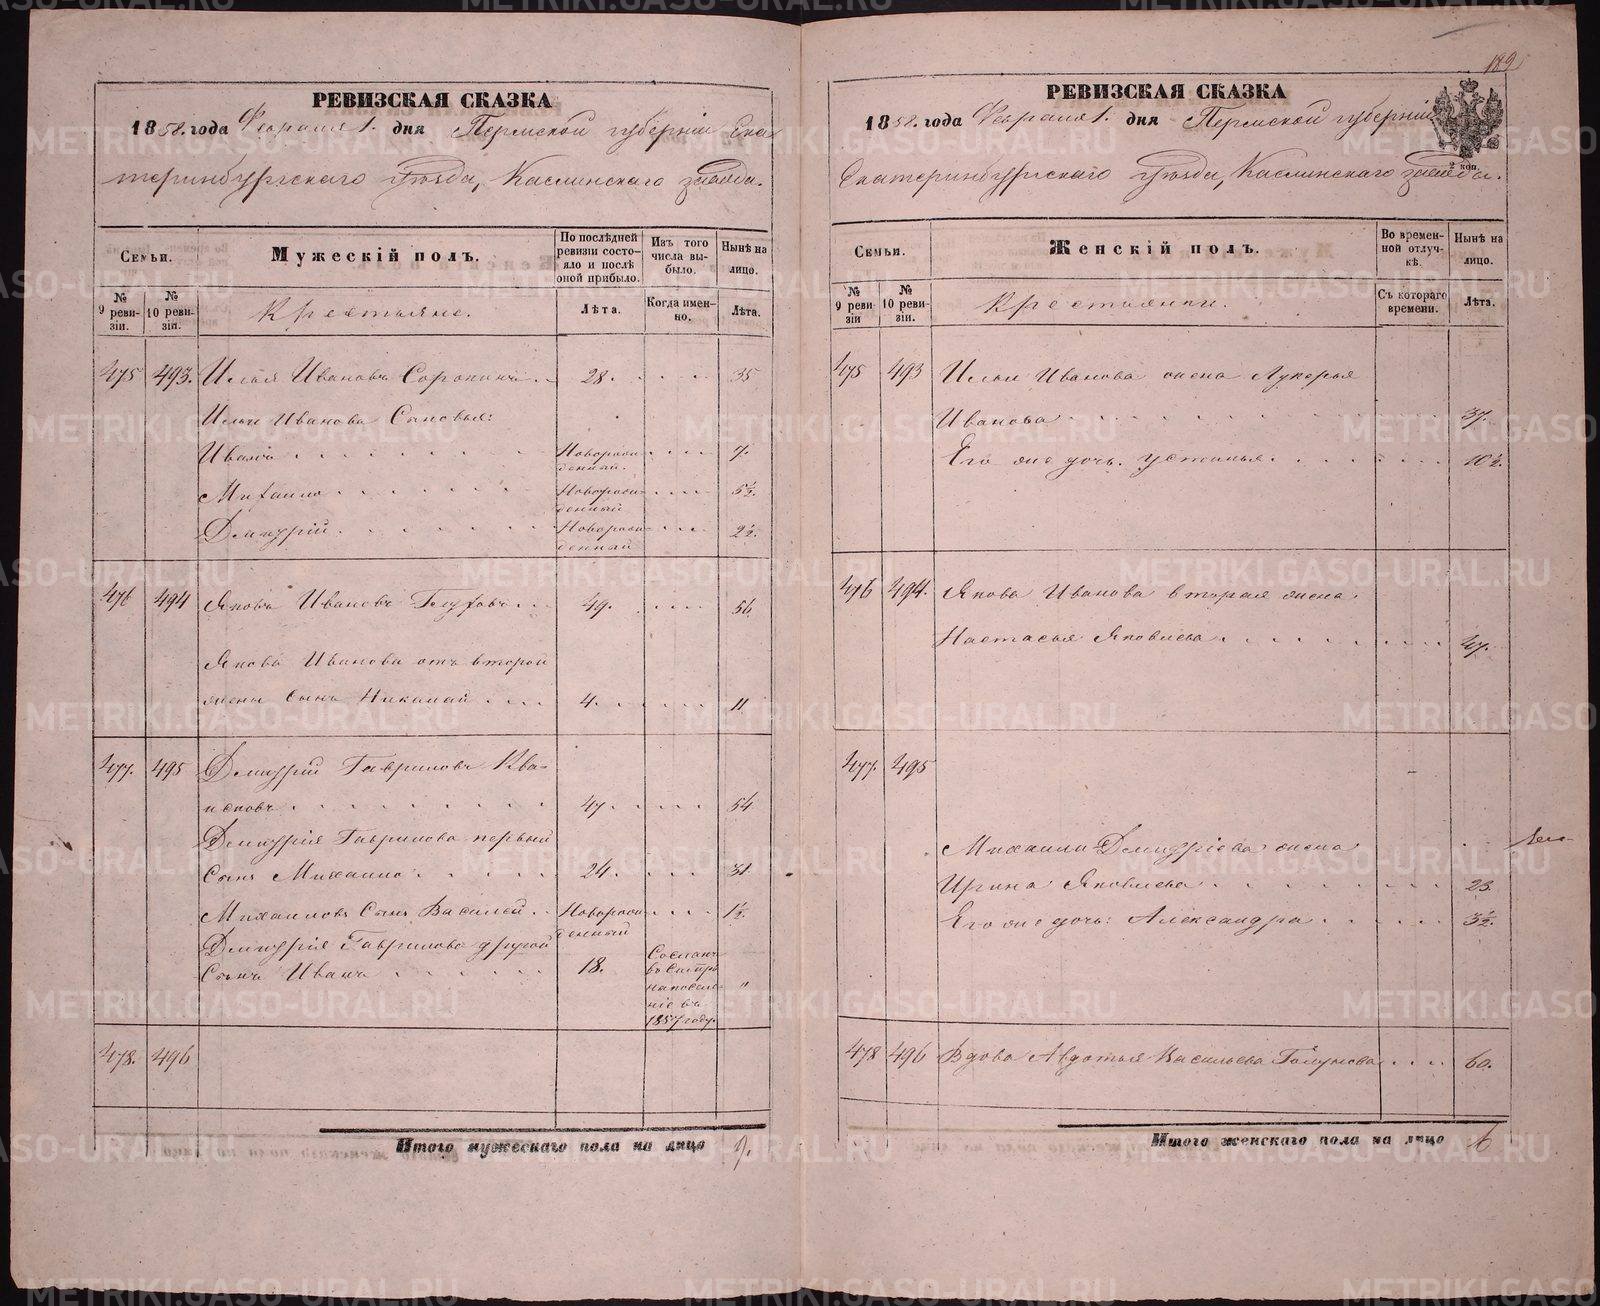 РЕВИЗСКАЯ СКАЗКА
1858. года Февраля 1. дня Пермской губернiи Ека-
теринбургскаго Уѣзда, Каслинскаго завода.
Семьи.
Мужескiй полъ.
По послѣдней ревизiи состояло и послѣ оной прибыло.
Изъ того числа выбыло.
Нынѣ на лицо.
№ 9 ревизiи.
№ 10 ревизiи.
Крестьяне.
Лѣта.
Когда именно.
Лѣта.
475 493. Илья Ивановъ Сорокинъ 28. 35
Ильи Иванова Сыновья:
Иванъ Новорожденный. 7.
Михаило Новорожденный 5½.
Дмитрiй Новорожденный 2½.
476 494 Яковъ Ивановъ Глуховъ 49. 56
Якова Иванова отъ второй
жены сынъ Николай 4. 11
477. 495 Дмитрiй Гавриловъ Ква-
шновъ 47. 54
Дмитрiя Гаврилова первый
Сынъ Михаило 24. 31
Михаиловъ Сынъ Василей Новорожденный 1½.
Дмитрiя Гаврилова другой
Сынъ Иванъ 18. Сосланъ въ Сибирь на поселенiе въ 1857 году. "
478. 496
Итого мужескаго пола на лицо 9.
189
РЕВИЗСКАЯ СКАЗКА
1858. года Февраля 1. дня Пермской губернiи
2 коп.
Екатеринбургскаго Уѣзда, Каслинскаго завода.
Семьи.
Женскiй полъ.
Во временной отлучкѣ.
Нынѣ на лицо.
№ 9 ревизiи
№ 10 ревизiи.
Крестьянки.
Съ котораго времени.
Лѣта.
475 493 Ильи Иванова жена Лукерья
Иванова 37.
Его же дочь. Устинья 10½.
476 494. Якова Иванова вторая жена
Настасья Яковлева 47.
477. 495
Михаилы Дмитрiева жена
Ирина Яковлева 23.
Его же дочь: Александра 3½.
478 496 Вдова Авдотья Васильева Голунова 60.
Итого женскаго пола на лицо 6
METRIKI.GASO-URAL.RU